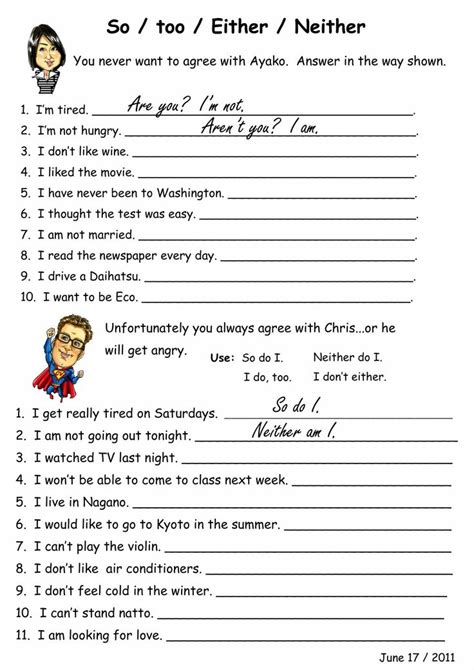 So / too / Either / Neither
You never want to agree with Ayako. Answer in the way shown.
1. I'm tired. Are you? I'm not.
2. I'm not hungry. Aren't you? I am.
3. I don't like wine.
4. I liked the movie.
5. I have never been to Washington.
6. I thought the test was easy.
7. I am not married.
8. I read the newspaper every day.
9. I drive a Daihatsu.
10. I want to be Eco.
Unfortunately you always agree with Chris...or he
will get angry. Use: So do I. Neither do I.
I do, too. I don't either.
1. I get really tired on Saturdays. So do I.
2. I am not going out tonight. Neither am I.
3. I watched TV last night.
4. I won't be able to come to class next week.
5. I live in Nagano.
6. I would like to go to Kyoto in the summer.
7. I can't play the violin.
8. I don't like air conditioners.
9. I don't feel cold in the winter.
10. I can't stand natto.
11. I am looking for love.
June 17 / 2011